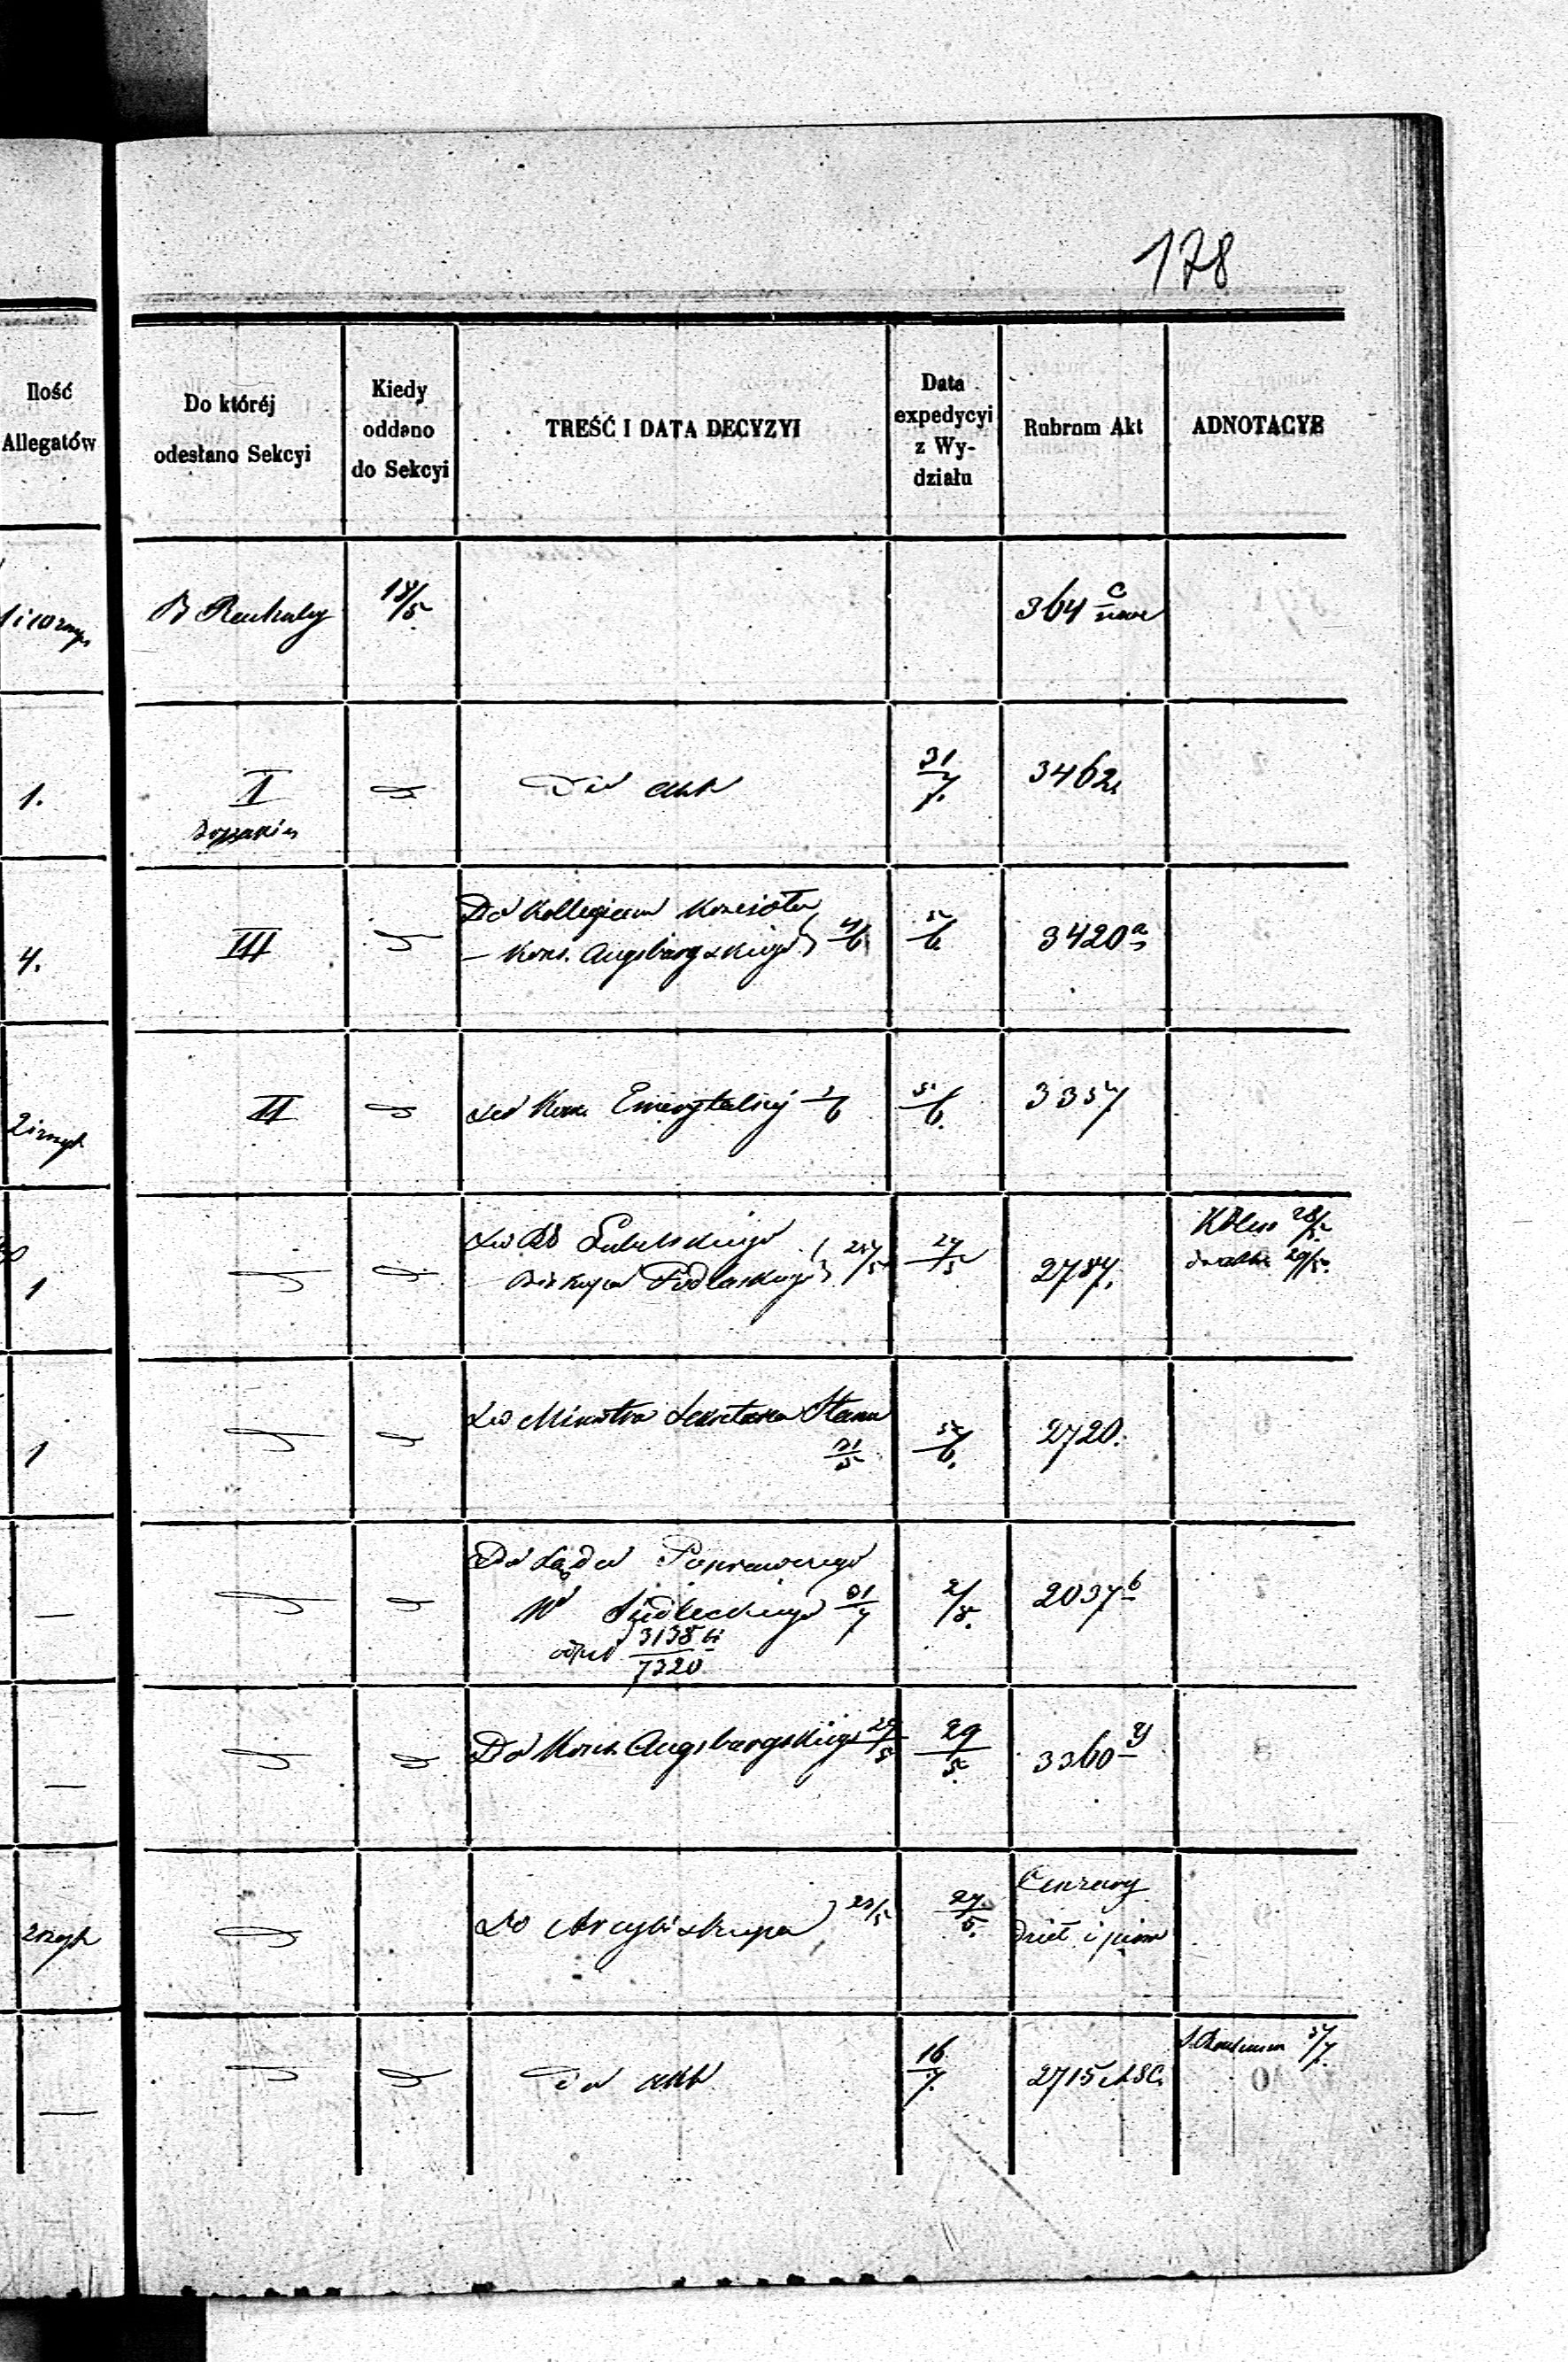 178
Ilość
Allegatów
Do któréj
odesłano Sekcyi
Kiedy
oddano
do Sekcyi
TREŚĆ I DATA DECYZYI
Data
expedycyi
z Wy-
działu
Rubrum Akt
ADNOTACYE
18/5
364 c
1.
II
Do akt
31/7.
3462
4.
III
Do Kollegium Kościoła
Kons. Augsburgskiego 4/6
5/6
3420 a
II
Do Kom. Emerytalnéj 3/6
5/6.
3357
1
Do Lubelskiego
Biskupa Podlaskiego 25/5
27/5
2787.
28/5.
29/5.
1
Do Ministra Sekretarza Stanu
31/5
5/6.
2720.
—
Do Sądu Poprawczego
Wo Siedleckiego 31/7
3138
7320
2/8.
2037 b
—
Do Kons. Augsburgskiego 29/5
29/5.
3360 y
Do Arcybiskupa 23/5
27/5.
Cenzury
dzieł i pism
—
Do akt
16/7.
2715